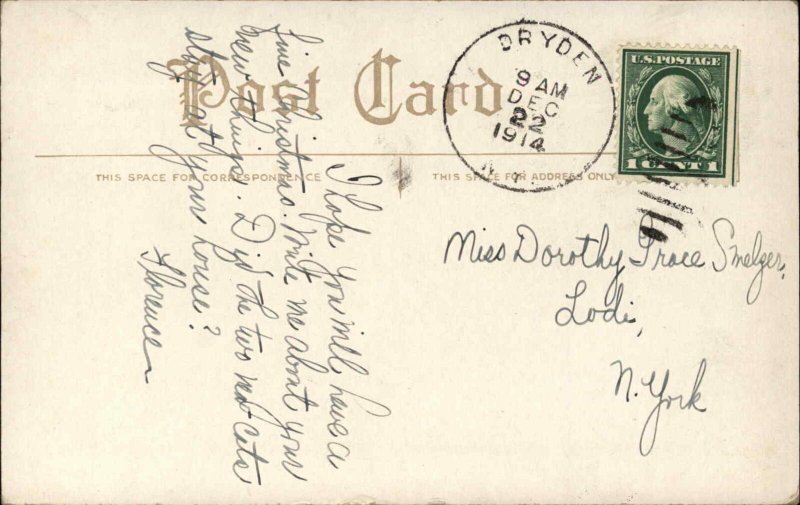 Post Card
THIS SPACE FOR CORRESPONDENCE
THIS SPACE FOR ADDRESS ONLY
DRYDEN
9 AM
DEC
22
1914
N.Y.
U.S. POSTAGE
1 CENT 1
Miss Dorothy Grace Smelzer,
Lodi,
N. York
I hope you will have a
fine Christmas. Write me about your
new things. Did the two new cats
stay at your house?
Florence